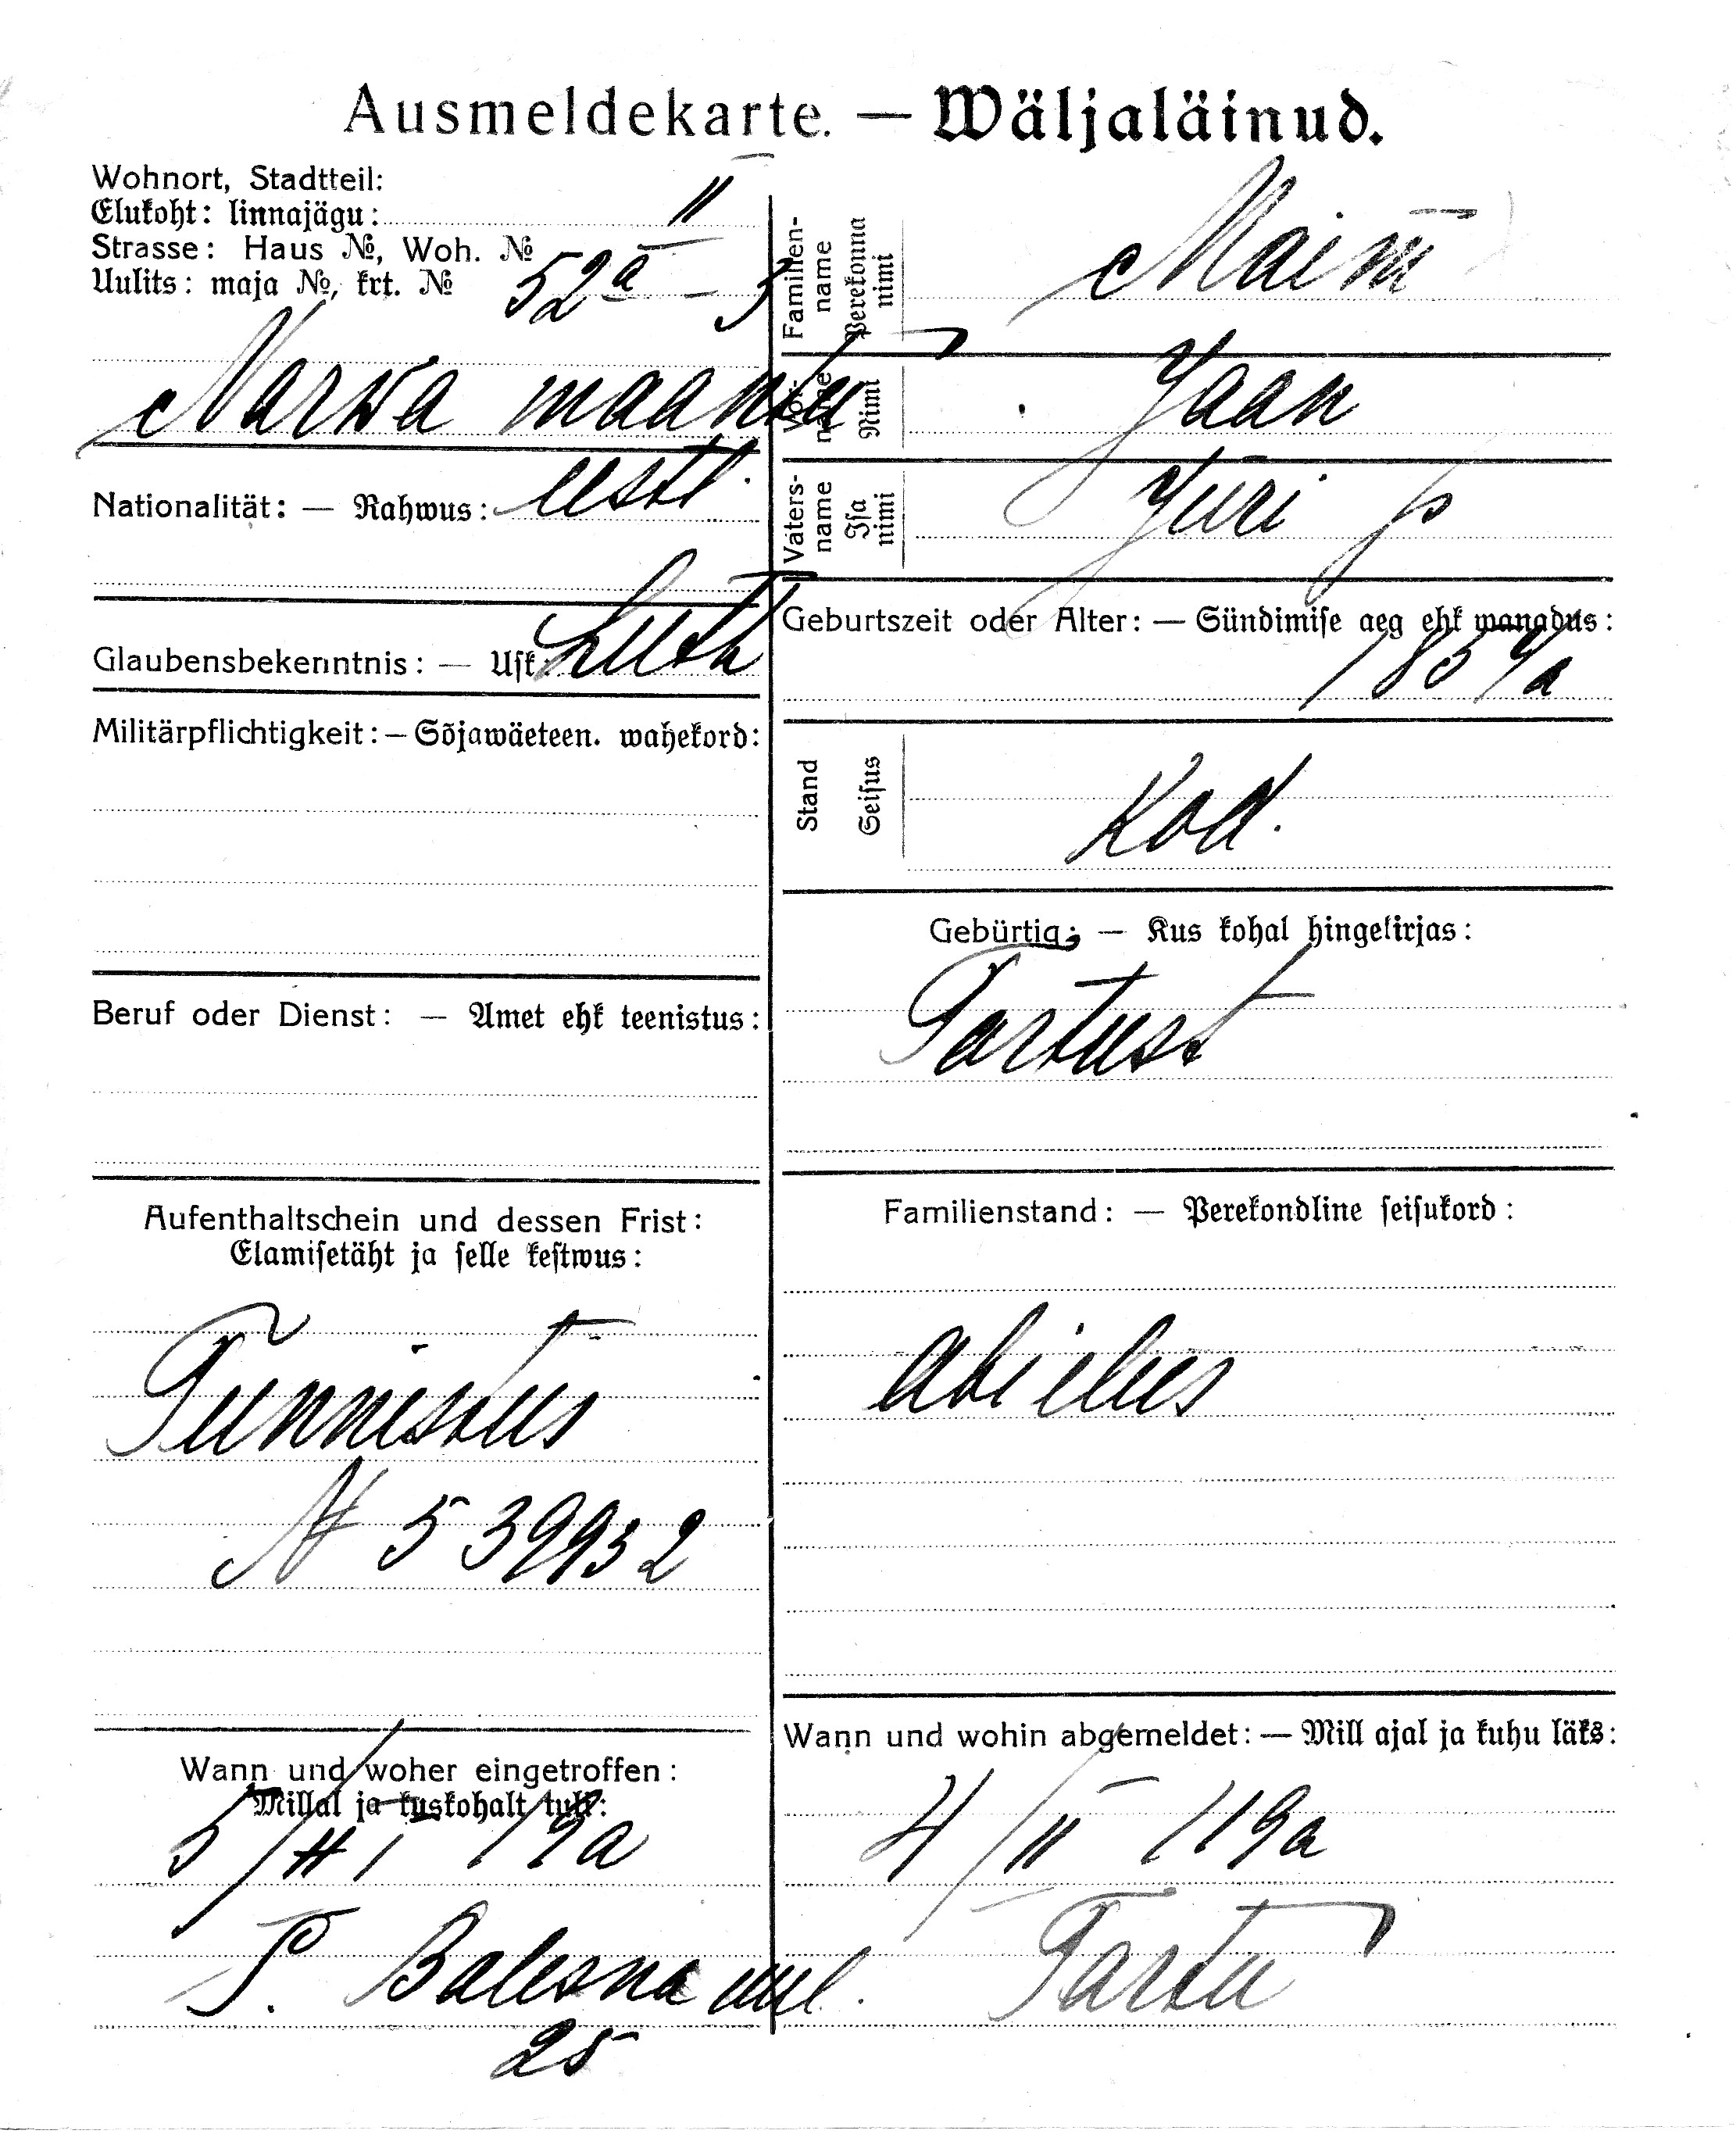 Ausmeldekarte. — Wäljaläinud.
Wohnort, Stadtteil:
Elukoht: linnajägu: II
Strasse: Haus №, Woh. №
Uulits: maja №, krt. № 52ª – 3
Narwa maantee
Nationalität: — Rahwus: eestl.
Glaubensbekenntnis: — Usk: Luth
Militärpflichtigkeit: — Sõjawäeteen. wahekord:
Beruf oder Dienst: — Amet ehk teenistus:
Aufenthaltschein und dessen Frist:
Elamisetäht ja selle kestwus:
Tunnistus
N 539932
Wann und woher eingetroffen:
Millal ja kuskohalt tuli:
19a
Balesna uul.
25
Familien-name Perekonna nimi Maim
Vor-name Nimi Jaan
Vaters-name Isa nimi Jüri p
Geburtszeit oder Alter: — Sündimise aeg ehk wanadus:
1854a
Stand Seisus Kod.
Gebürtig: — Kus kohal hingekirjas:
Tartust
Familienstand: — Perekondline seisukord:
Abielus
Wann und wohin abgemeldet: — Mill ajal ja kuhu läks:
4/II 119a
Tartu